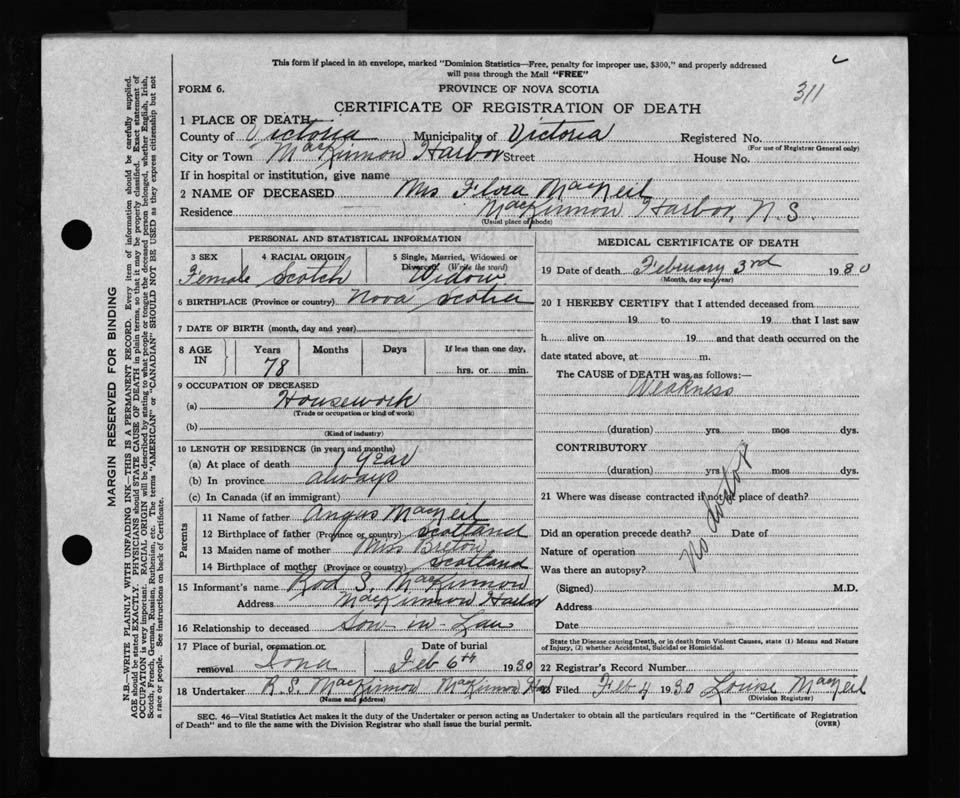 This form if placed in an envelope, marked "Dominion Statistics—Free, penalty for improper use, $300," and properly addressed
will pass through the Mail "FREE"
311
FORM 6.
PROVINCE OF NOVA SCOTIA
CERTIFICATE OF REGISTRATION OF DEATH
1 PLACE OF DEATH
County of Victoria Municipality of Victoria Registered No.
(For use of Registrar General only)
City or Town MacKinnon Harbor Street House No.
If in hospital or institution, give name
2 NAME OF DECEASED Mrs MacNeil
Residence MacKinnon Harbor, N.S.
(Usual place of abode)
PERSONAL AND STATISTICAL INFORMATION
3 SEX Female
4 RACIAL ORIGIN Scotch
5 Single, Married, Widowed or
Divorced (Write the word)
Widow
6 BIRTHPLACE (Province or country) Nova Scotia
7 DATE OF BIRTH (month, day and year)
8 AGE IN Years 78 Months Days If less than one day, hrs. or min.
9 OCCUPATION OF DECEASED
(a) Housework
(Trade or occupation or kind of work)
(b)
(Kind of industry)
10 LENGTH OF RESIDENCE (in years and months)
(a) At place of death 1 year
(b) In province always
(c) In Canada (if an immigrant)
Parents
11 Name of father Angus MacNeil
12 Birthplace of father (Province or country) Scotland
13 Maiden name of mother Miss Breton
14 Birthplace of mother (Province or country) Scotland
15 Informant's name Rod S. MacKinnon
Address MacKinnon Harbor
16 Relationship to deceased Son-in-Law
17 Place of burial, cremation or
removal Iona
Date of burial
Feb 6th 1930
18 Undertaker R S. MacKinnon MacKinnon Har
(Name and address)
MEDICAL CERTIFICATE OF DEATH
19 Date of death February 3rd 1930
(Month, day and year)
20 I HEREBY CERTIFY that I attended deceased from
19 to 19 that I last saw
h alive on 19 and that death occurred on the
date stated above, at m.
The CAUSE of DEATH was as follows:—
Weakness
(duration) yrs. mos dys.
CONTRIBUTORY
(duration) yrs mos dys.
21 Where was disease contracted if not at place of death?
No doctor
Did an operation precede death? Date of
Nature of operation
Was there an autopsy?
(Signed) M.D.
Address
Date
State the Disease causing Death, or in death from Violent Causes, state (1) Means and Nature
of Injury, (2) whether Accidental, Suicidal or Homicidal.
22 Registrar's Record Number
Filed Feb 4 1930 Louise MacNeil
(Division Registrar)
SEC. 46—Vital Statistics Act makes it the duty of the Undertaker or person acting as Undertaker to obtain all the particulars required in the "Certificate of Registration
of Death" and to file the same with the Division Registrar who shall issue the burial permit.
(OVER)
MARGIN RESERVED FOR BINDING
N.B.—WRITE PLAINLY WITH UNFADING INK—THIS IS A PERMANENT RECORD. Every item of information should be carefully supplied.
AGE should be stated EXACTLY. PHYSICIANS should STATE CAUSE OF DEATH in plain terms, so that it may be properly classified. Exact statement of
OCCUPATION is very important. RACIAL ORIGIN will be described by stating to what people or tongue the deceased person belonged, whether English, Irish,
Scotch, French, German, Russian, Ruthenian, etc. The terms "AMERICAN" or "CANADIAN" SHOULD NOT BE USED as they express citizenship but not
a race or people. See instructions on back of Certificate.